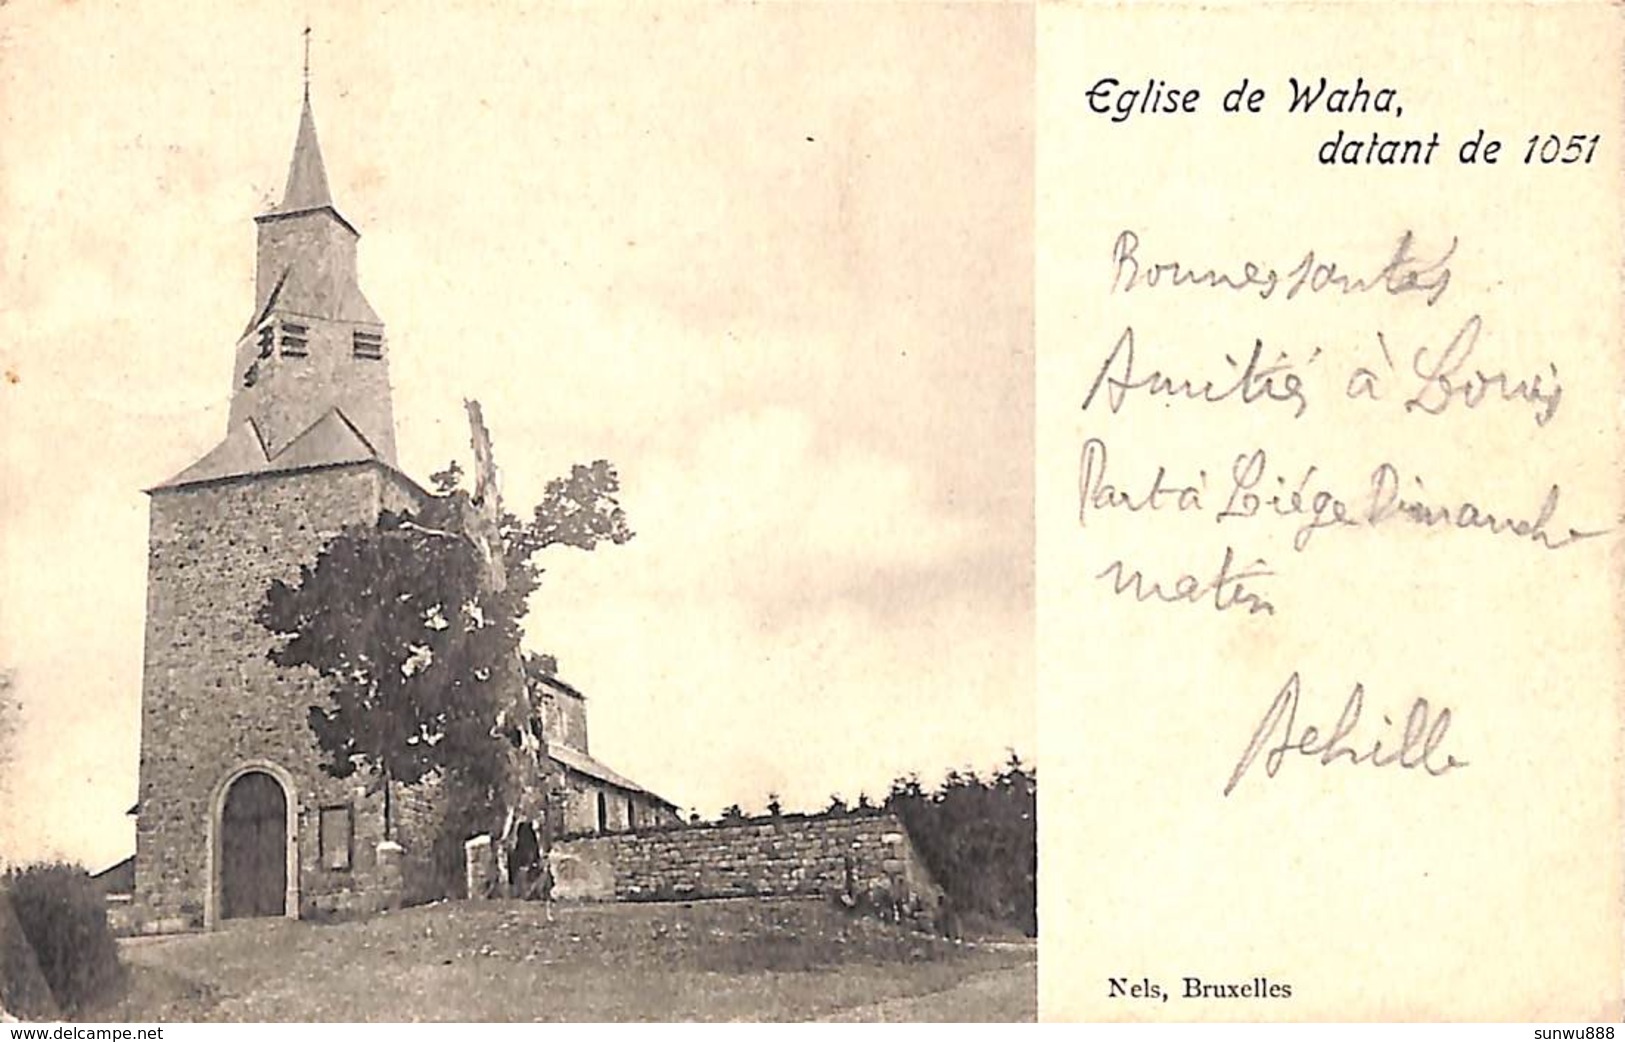 Eglise de Waha,
datant de 1051
Bonnes santés
Amitiés à Louis
Part à Liége Dimanche
matin
Achille
Nels, Bruxelles
www.delcampe.net
sunwu888